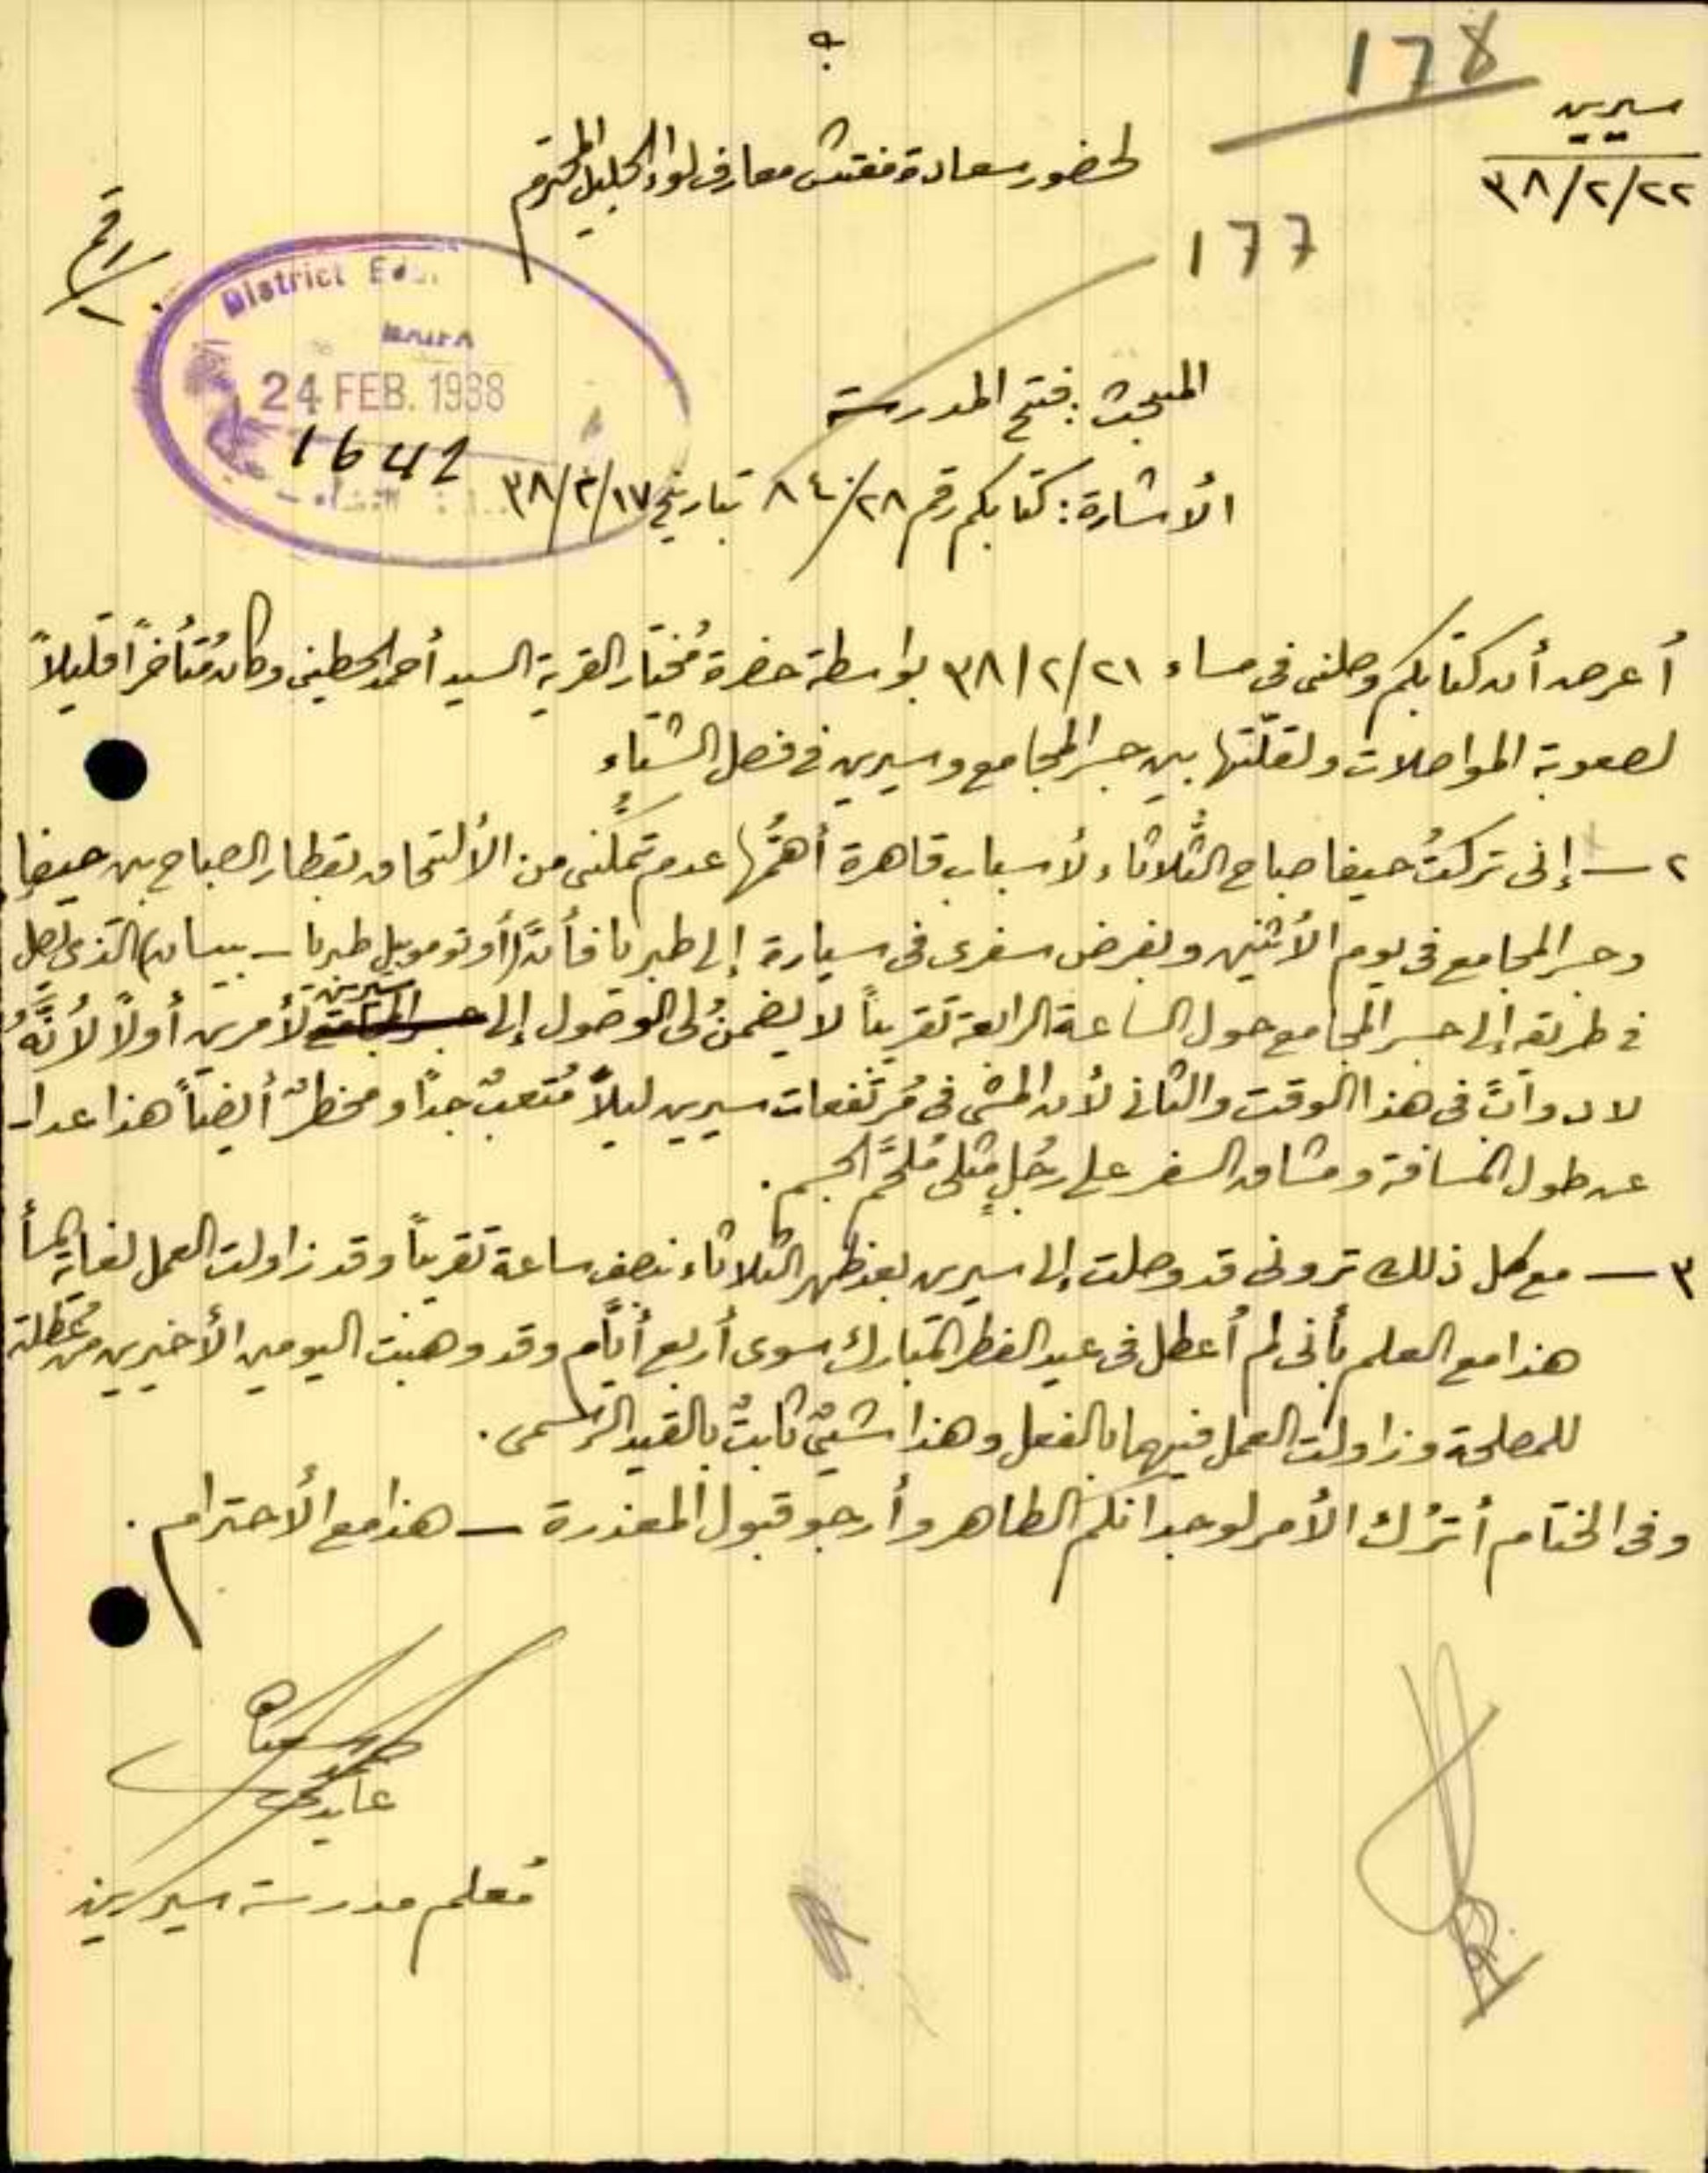 178
سيرين
٣٨/٢/٢٢
لحضور سعادة مفتش معارف لواء الجليل المحترم
رقم
177
District Edu.
24 FEB. 1938
1642
المبحث: فتح المدرسة
الأشارة: كتابكم رقم ٨٤/٢٨ بتاريخ ٣٨/٢/١٧
أعرض أن كتابكم وصلني في مساء ٣٨/٢/٢١ بواسطة حضرة مُختار القرية السيد أحمد الحطيني وكان مُتأخراً قليلاً
لصعوبة المواصلات ولقلّتها بين جسر المجامع وسيرين في فصل الشتاء
٢ — إني تركتُ حيفا صباح الثلاثاء لأسباب قاهرة أهمُّها عدم تمكّني من الألتحاق بقطار الصباح بين حيفا
وجسر المجامع في يوم الأثنين وبفرض سفري في سيارة إلى طبريا فأنَّ (أوتوموبيل طبريا – بيسان) الذي يصل
في طريقه إلى جسر المجامع حول الساعة الرابعة تقريباً لا يضمنُ لي الوصول إلى سيرين لأمرين أولاً لأنَّهُ
لا دوابَّ في هذا الوقت والثاني لأن المشي في مُرتفعات سيرين ليلاً مُتعبٌ جداً ومخطرٌ أيضاً هذا عدا
عن طول المسافة ومشاق السفر على رجُلٍ مثلي مُلحَّم الجسم.
٣ — مع كل ذلك تروني قد وصلت إلى سيرين بعد ظهر الثلاثاء بنصف ساعة تقريباً وقد زاولت العمل لغاية المسأ
هذا مع العلم بأني لم أعطل في عيد الفطر المُبارك سوى أربع أيّام وقد وهبت اليومين الأخيرين من عُطلة
للمصلحة وزاولت العمل فيهما بالفعل وهذا شيئٌ ثابتٌ بالقيد الرّسمي.
وفي الختام أترُك الأمر لوجدانكم الطاهر وأرجو قبول المعذرة — هذا مع الأحترام.
مُعلم مدرسة سيرين